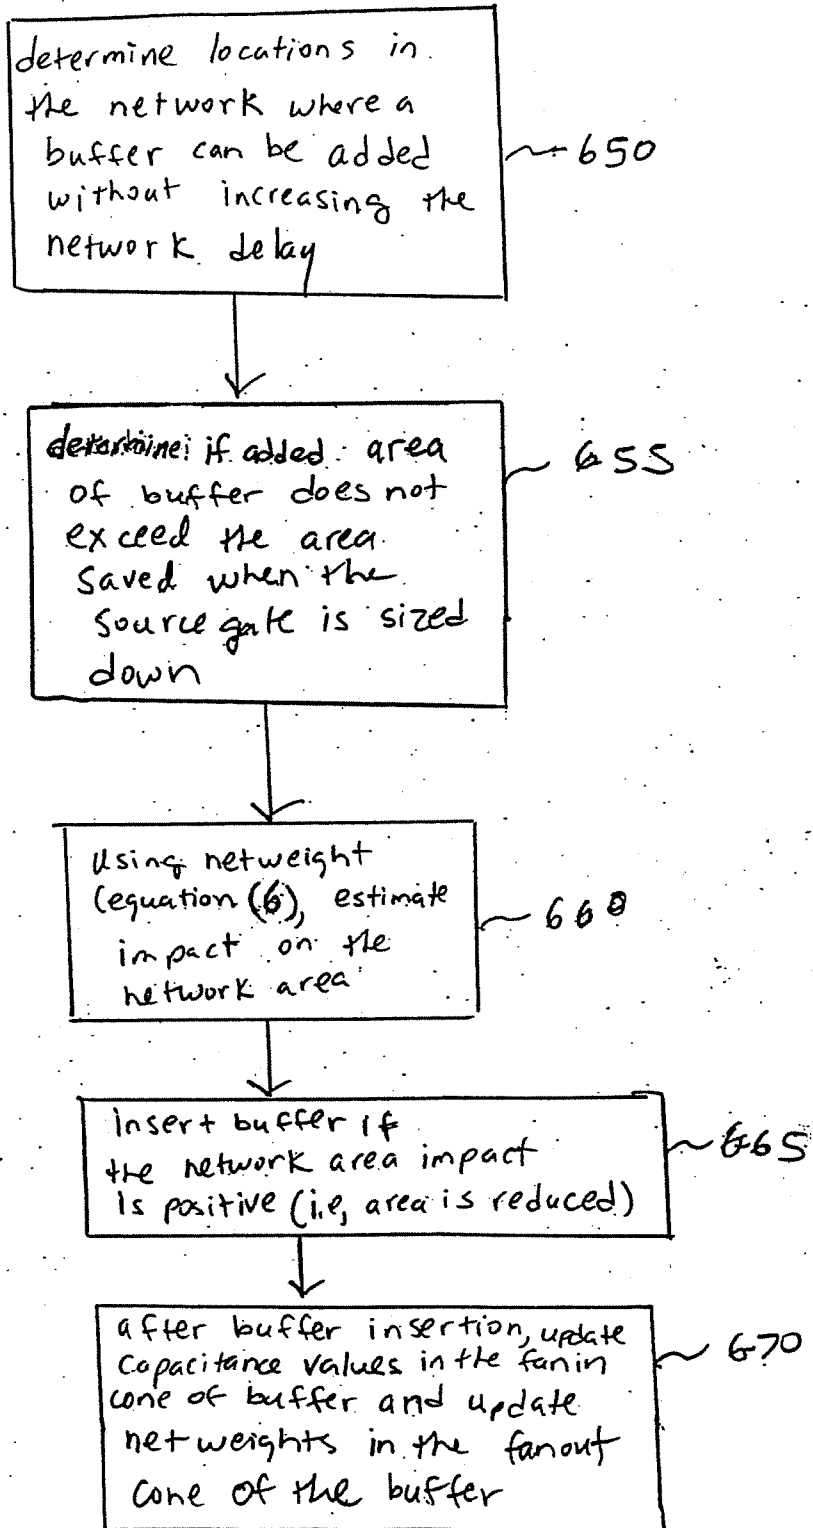 determine locations in
the network where a
buffer can be added
without increasing the
network delay
650
determine if added area
of buffer does not
exceed the area
saved when the
source gate is sized
down
655
Using netweight
(equation (6), estimate
impact on the
network area
660
Insert buffer if
the network area impact
is positive (i.e, area is reduced)
665
after buffer insertion, update
capacitance values in the fanin
cone of buffer and update
netweights in the fanout
cone of the buffer
670